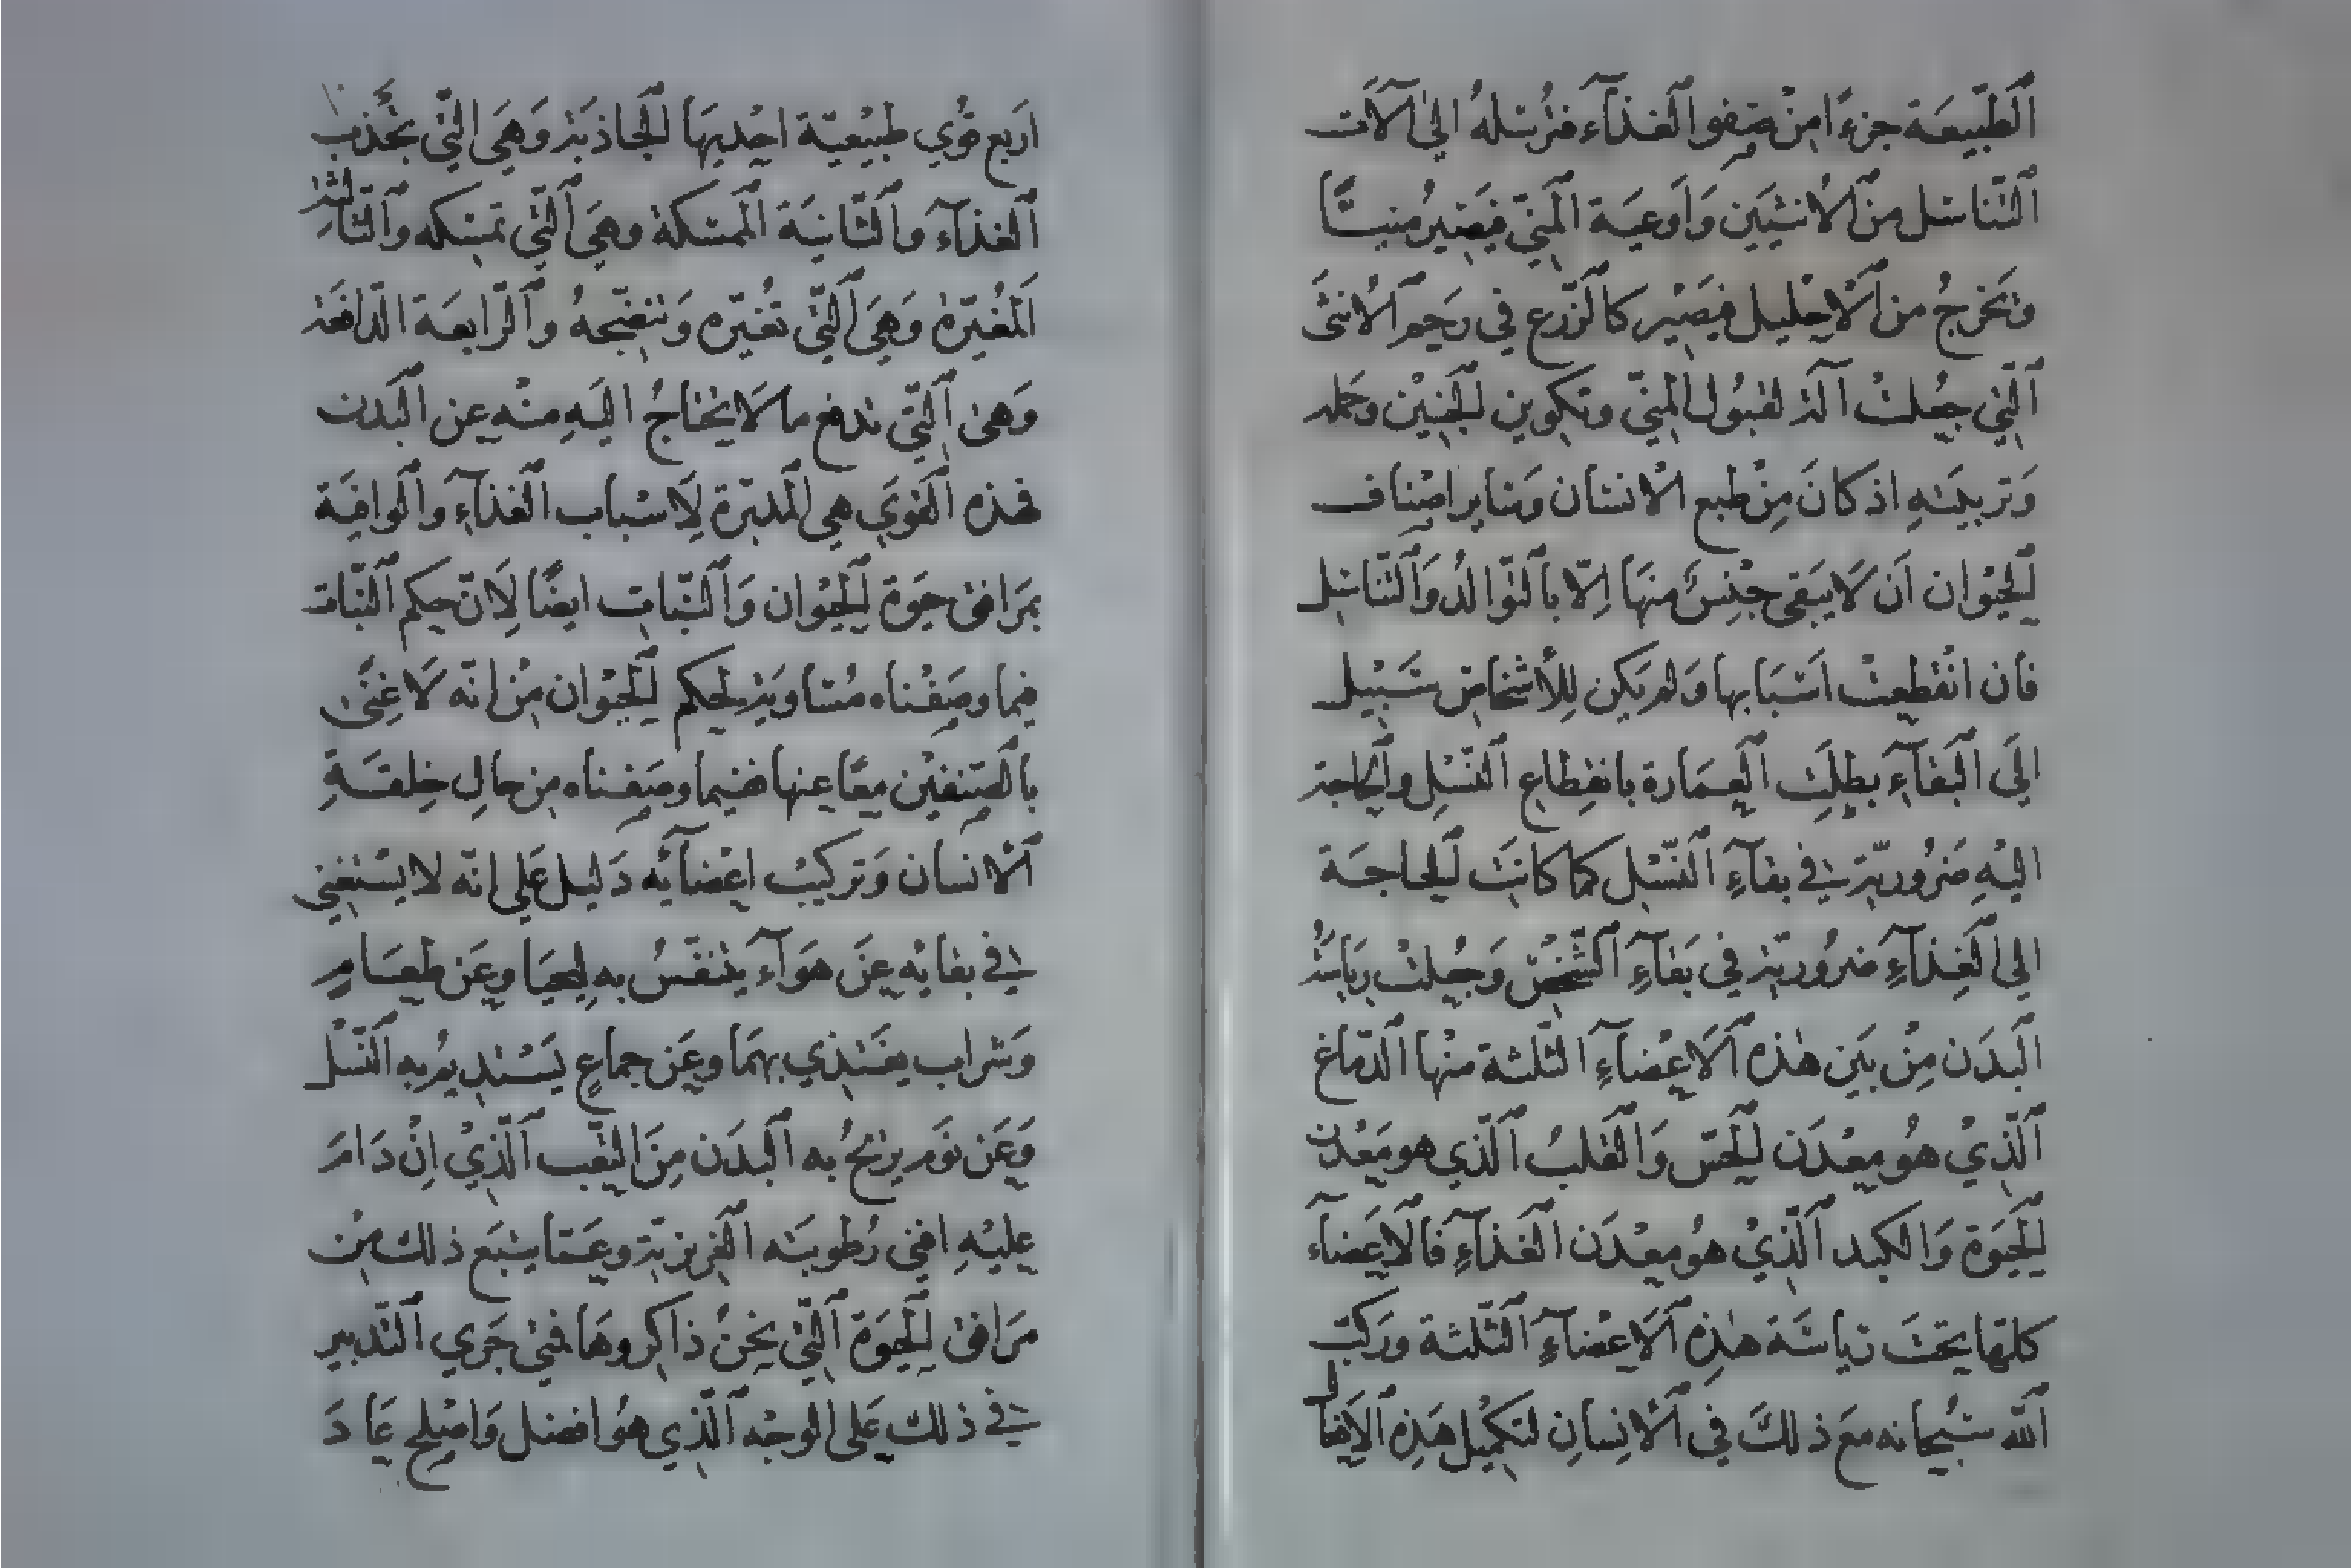 الطّبيعَة جزءًا مِنْ صَفو الغذآء فتُرسلهُ الىٰ آلاَت
التّناسل من الاُنثيَين وَاَوعيَة المَنيّ فيَصيرُ منيّـًا
وَيَخرجُ من الاحْليل فيَصيْر كالزّرع في رَحِم الاُنثَى
الّتي جعُلتْ آلة لقبُول المنيّ وتكوين الجَنيْن وحَمله
وَتربيَتهِ اذ كانَ مِنْ طبع الانسَان وَسَاير اصْنَاف
الحَيْوان اَن لَا يَبقى جنسٌ منهَا اِلّا بالتّوالدُ وَالتّناسُل
فان انْقطعتْ اَسْبَابها وَلم يَكن لِلأشخاصِ سَبيْل
الىَ البَقآءِ بطلَت العِمَارة بانقِطاع النّسْلِ والحاجة
اليْهِ ضَرُوريّة في بقآءِ النّسْل كما كانَت الحَاجَة
الى الغِذآءِ ضرُوريّة في بَقآءِ الشّخصْ وَجُعلتْ رِيَاسَة
البَدَن مِنْ بَين هٰذه الاَعْضآءِ الثّلثة منْها الدّماغ
الّذيْ هوُ معْدَن الحسّ وَالقَلبُ الّذي هو مَعْدن
الحَيَوة وَالكبد الّذيْ هوُ معْدَن الغَذآءِ فالاَعَضآء
كلّها تحتَ رياسَة هٰذِه الاَعْضآءِ الثّلثة ورَكّبَ
الله سُبْحانه معَ ذلكَ في الاْنِسانِ لتَكميْل هَذِه الاَفعال
اَربع قوُي طبيْعيّة احْديهَا الجَاذبَة وَهيَ الّتي تجْذب
الغذآءَ والثّانيَة المَمسكة وهيَ الّتي تمسْكه والثّالثة
المغُيّرة وَهيَ الّتي تغُيّره وَتنضْجهُ والرّابعَة الدّافعَة
وَهىَ الّتي تدفع ما لَا يحْتاجُ اليَهِ منْه عن البَدن
فهذه القوَي هي المدَبّرة لِاَسْباب الغذآءِ وَالوافيَة
بمَرَافق حَيَوة الحَيْوان وَالنّبات ايضًا لِاَنّ حكم النّبات
فيما وصَفْناه مُسَاو لحكم الحَيْوان مِنْ انّه لَا غِنًى
بالصّنفيْن معًا عنها ففيما وصَفناه من حالِ خِلقَةِ
الاْنسان وَتركيبْ اعْضآئه دَليل عَلى انّه لا يسْتَغني
في بقايه عَنَ هوَآء يَتنفّسُ به ليحيَا وعَن طعَام
وَشراب يغَتذي بهَما وعَن جماعٍ يَسْتديمُ به النّسْل
وَعَن نوَم يريحُ به البَدَن مِنَ التّعَب الّذيْ اِنْ دَامَ
عليْهِ افني رُطوبَته الغَريزيّة وعَمّا يتبَع ذلك مِنْ
مَرَافق الحَيَوة الّتي نحنُ ذاكروهَا فمتي جَري التّدبير
في ذلك عَلى الوجْه الّذي هوُ افضل وَاصْلح عَادَ